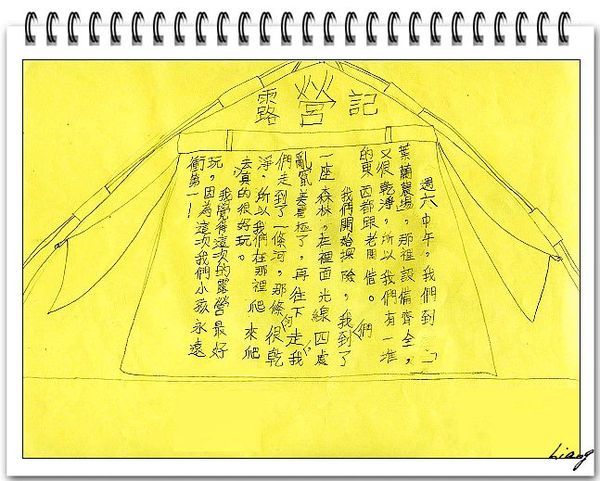 露營記
週六中午，我們到二
葉蘭農場，那裡設備齊全，
又很乾淨，所以我們有一堆
的東西都跟老闆借。
我們開始探險，我們到了
一座森林，在裡面光線四處
亂竄美極了，再往下走，我
們走到了一條河，那條很乾
淨，所以我們在那裡爬來爬
去，真的很好玩。
我覺得這次的露營最好
玩，因為這次我們小孩永遠
衝第一！
Liang